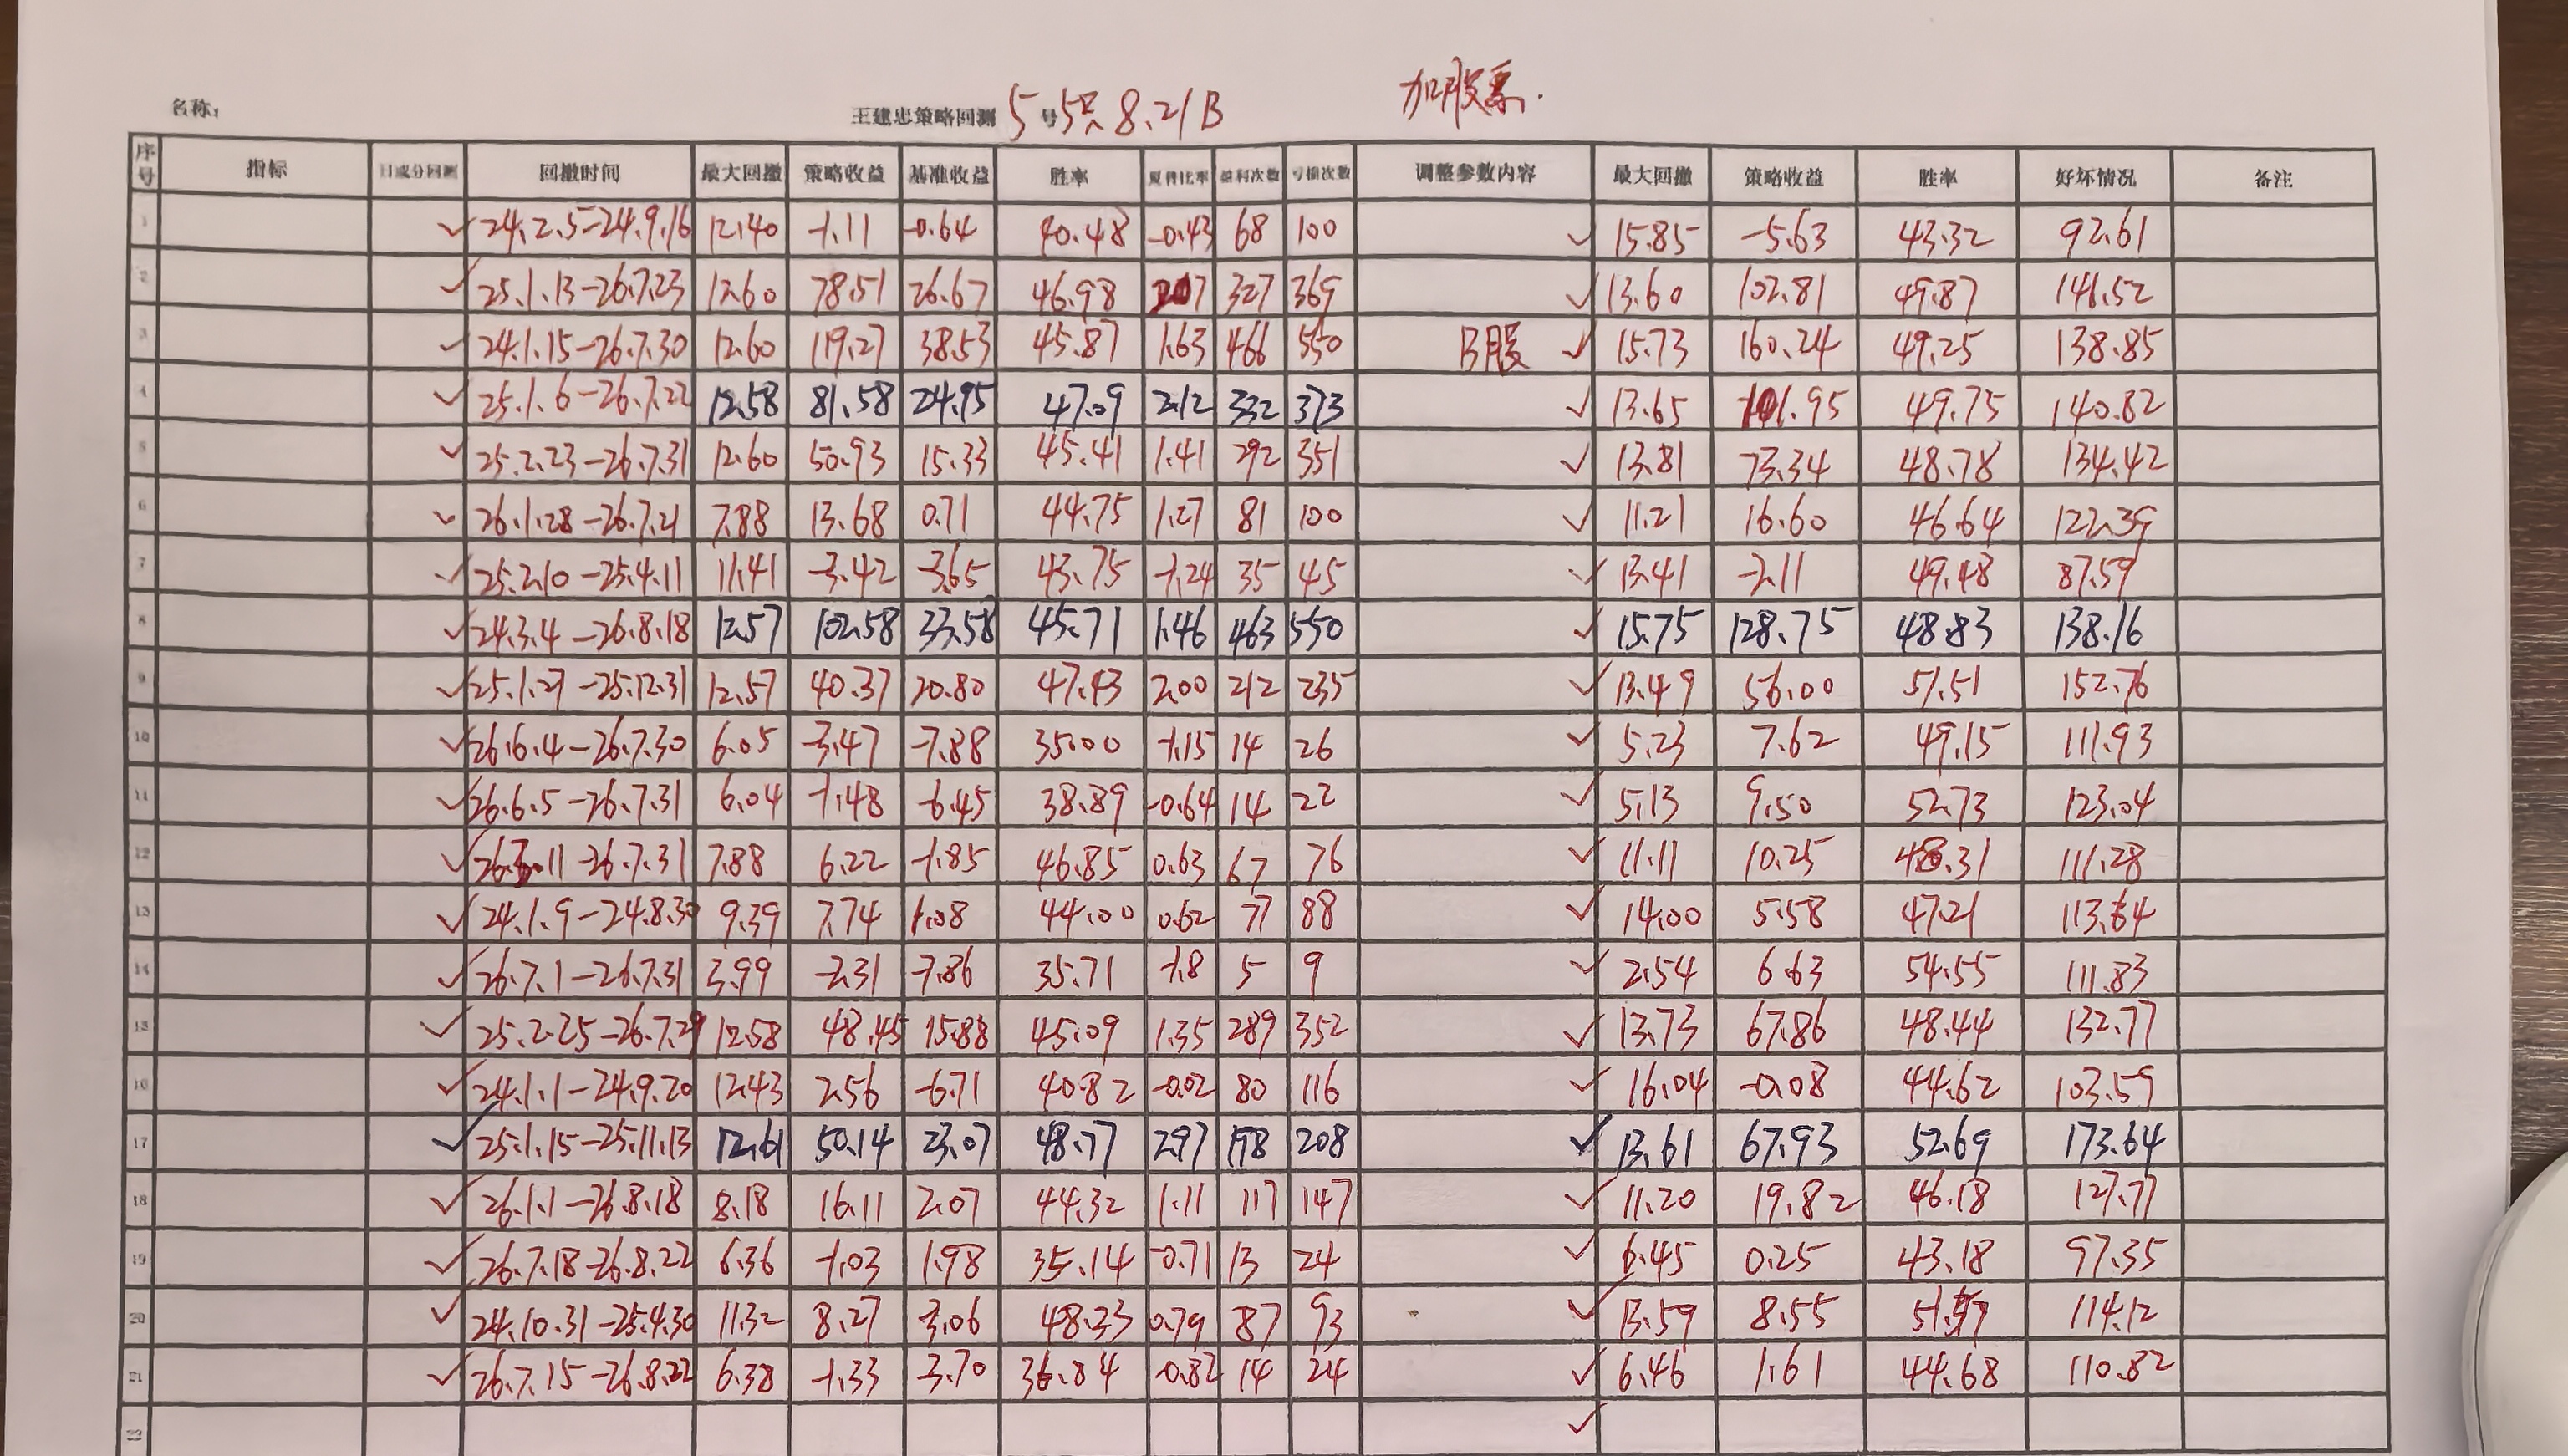 加股票.
名称: 王建忠策略回测 5 号 5只 8.21B
序号 指标 日或分回测 回撤时间 最大回撤 策略收益 基准收益 胜率 夏普比率 盈利次数 亏损次数 调整参数内容 最大回撤 策略收益 胜率 好坏情况 备注
1 ✓ 24.2.5-24.9.16 12.40 -1.11 -0.64 40.48 -0.43 68 100 ✓ 15.85 -5.63 43.32 92.61
2 ✓ 25.1.13-26.7.23 12.60 78.51 26.67 46.98 2.07 327 369 ✓ 13.60 102.81 49.87 141.52
3 ✓ 24.1.15-26.7.30 12.60 119.27 38.53 45.87 1.63 466 550 B股 ✓ 15.73 160.24 49.25 138.85
4 ✓ 25.1.6-26.7.22 12.58 81.58 24.95 47.09 2.12 332 373 ✓ 13.65 101.95 49.75 140.82
5 ✓ 25.2.23-26.7.31 12.60 50.93 15.33 45.41 1.41 292 351 ✓ 13.81 73.34 48.78 134.42
6 ✓ 26.1.28-26.7.21 7.88 13.68 0.71 44.75 1.27 81 100 ✓ 11.21 16.60 46.64 122.39
7 ✓ 25.2.10-25.4.11 11.41 -3.42 -3.65 43.75 -1.24 35 45 ✓ 13.41 -2.11 49.48 87.59
8 ✓ 24.3.4-26.8.18 12.57 102.58 33.58 45.71 1.46 463 550 ✓ 15.75 128.75 48.83 138.16
9 ✓ 25.1.27-25.12.31 12.57 40.37 20.80 47.43 2.00 212 235 ✓ 13.49 56.00 51.51 152.76
10 ✓ 26.6.4-26.7.30 6.05 -3.47 -7.88 35.00 -1.15 14 26 ✓ 5.23 7.62 49.15 111.93
11 ✓ 26.6.5-26.7.31 6.04 -1.48 -6.45 38.89 -0.64 14 22 ✓ 5.13 9.50 52.73 123.04
12 ✓ 26.3.11-26.7.31 7.88 6.22 -1.85 46.85 0.63 67 76 ✓ 11.11 10.25 48.31 111.28
13 ✓ 24.1.9-24.8.30 9.39 7.74 1.08 44.00 0.62 77 88 ✓ 14.00 5.58 47.21 113.64
14 ✓ 26.7.1-26.7.31 3.99 -2.31 -7.86 35.71 -1.8 5 9 ✓ 2.54 6.63 54.55 111.83
15 ✓ 25.2.25-26.7.29 12.58 48.45 15.88 45.09 1.35 289 352 ✓ 13.73 67.86 48.44 132.77
16 ✓ 24.1.1-24.9.20 12.43 2.56 -6.71 40.82 -0.02 80 116 ✓ 16.04 -0.08 44.62 103.59
17 ✓ 25.1.15-25.11.13 12.61 50.14 23.07 48.77 2.97 198 208 ✓ 13.61 67.93 52.69 173.64
18 ✓ 26.1.1-26.8.18 8.18 16.11 2.07 44.32 1.11 117 147 ✓ 11.20 19.82 46.18 127.77
19 ✓ 26.7.18-26.8.22 6.36 -1.03 1.98 35.14 -0.71 13 24 ✓ 6.45 0.25 43.18 97.35
20 ✓ 24.10.31-25.4.30 11.32 8.27 -3.06 48.33 0.79 87 93 ✓ 13.59 8.55 114.12
21 ✓ 26.7.15-26.8.22 6.38 -1.33 -3.70 36.84 -0.82 14 24 ✓ 6.46 1.61 44.68 110.82
22 ✓